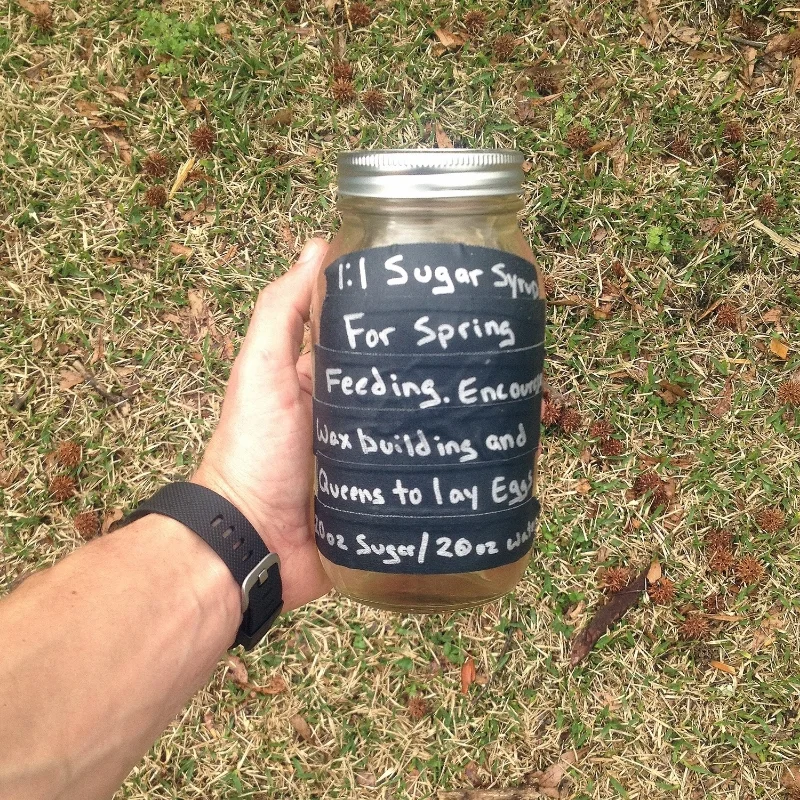 1:1 Sugar Syrup
For Spring
Feeding. Encour
Wax building and
Queens to lay Eggs
20oz Sugar/20oz Water